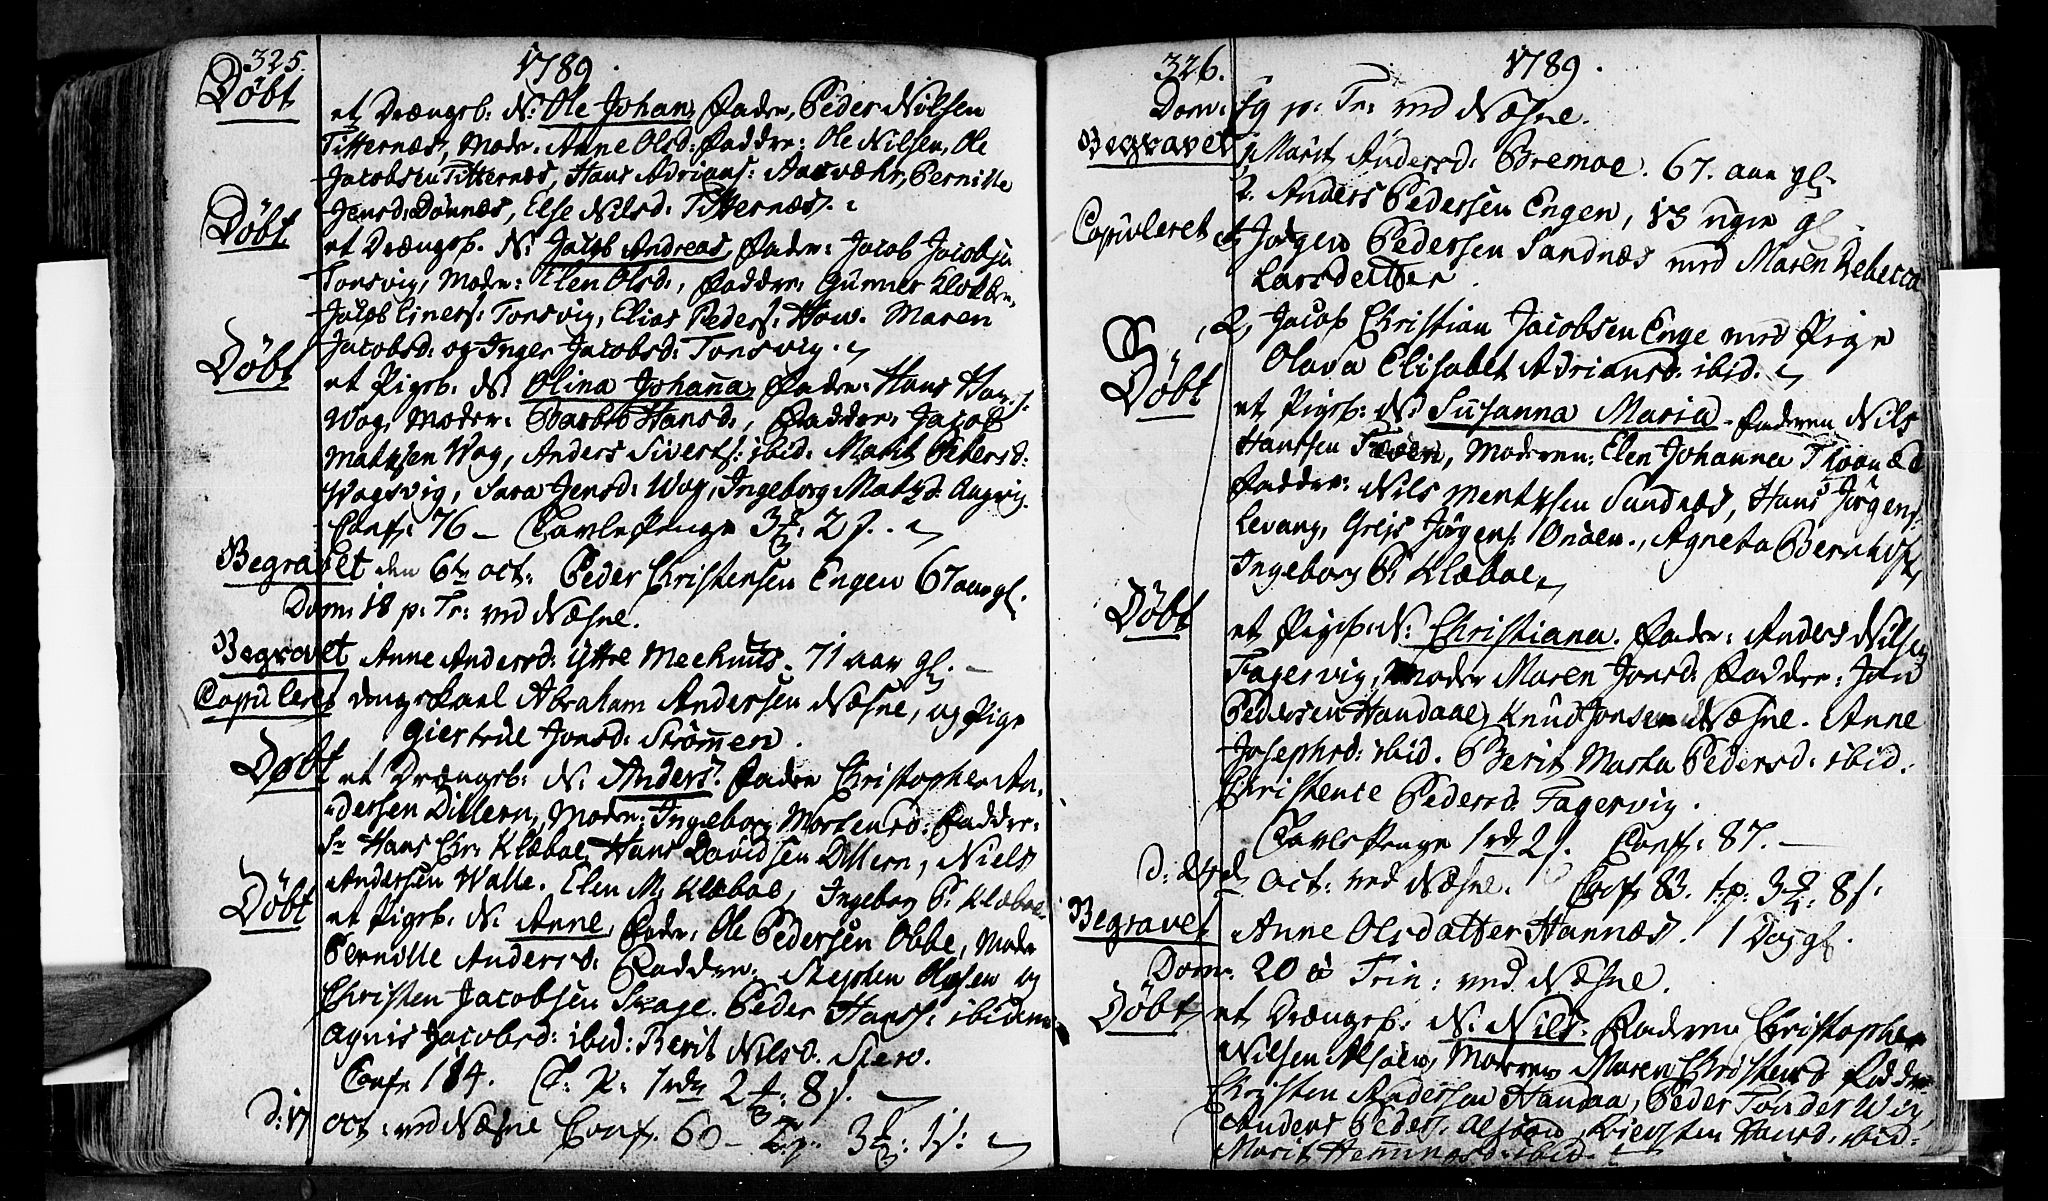 325. 1789.
Døbt et Drængeb: N: Ole Johan, Fader, Peder Nilsen
Titternæs, Moder. Anne Olsd: Faddr: Ole Nilsen, Ole
Jacobsen Titternæs, Hans Adrians: Aasvæhr, Pernille
Jensd: Dønnæs, Else Nilsd: Titternæs.
Døbt et Drængeb. N: Jacob Andreas, Fader: Jacob Jacobsen
Tonsvig, Moder: Elen Olsd:, Faddr: Gunner Klokker,
Jacob Einers: Tonsvig, Elias Peders: How. Maren
Jacobsd: og Inger Jacobsd: Tonsvig.
Døbt et Pigeb. N: Olina Johanna, Fader: Hans Hans:
Wog, Moder: Hansd:, Fadder: Jacob
Mathisen Wog, Anders Siverts: ibid. Marit Pedersd:
Wogsvig, Sara Jensd: Wog, Ingeborg Matsd.
Conf: 76 – Tavle Penge 3 2 s.
Begravet den 6te oct: Peder Christensen Engen 67 aar gl.
Dom: 18 p: Tr: ved Næsne.
Begravet Anne Andersd: Yttre 71 aar gl. –
Copuleret Abraham Andersen Næsne, og Pige
Giertrue Jonsd: Strømmen.
Døbt et Drængeb: N: Anders. Fader Christopher An-
dersen Dillern, Moder: Ingeborg Mortensd: Fadder:
Sr Hans Chr: Klæboe, Hans Davidsen Dillern, Niels
Andersen Walle. Elen M: Klæboe, Ingeborg P: Klæboe.
Døbt et Pigeb. N: Anne, Fader, Ole Pedersen Obbe, Moder
Pernille Andersd: Fadder: Stephen Olsen og
Christen Jacobsen Peder Hans: ibidem
Agnis Jacobsd: ibid: Berit Nilsd.
Conf: 184. T: P: 1 rdr 2 8 s. —
D: 17 oct: ved Næsne Conf. 60 – T:p. 3 1 s:
326. 1789.
Dom: 19 p: Tr: ved Næsne.
Begravet 1, Marit Andersd: Bremoe. 67. aar gl.
2. Anders Pedersen Engen, 13 uger gl.
Copuleret 1, Jørgen Pedersen Sandnæs med Maren Rebecca
Larsdatter.
2, Jacob Christian Jacobsen Enge med Pige
Olava Elisabet Adriansd: ibid.
Døbt et Pigeb: N: Susanna Maria – Faderen Nils
Hanssen Moderen: Elen Johanna
Faddr: Nils Mentzsen Sandnæs, Hans Jørgens:
Levang, Grejs Jørgens: Agneta
Ingeborg P: Klæboe
Døbt et Pigeb: N: Christiana. Fader: Anders Nilsen
Fagervig, Moder Maren Jonsd: Fadder: Jon
Pedersen Handaae, Knud Jonsen Næsne. Anne
Josephsd: ibid. Berit Marta Pedersd: ibid.
Christence Pedersd: Fagervig.
Tavle Penge 1 rd 2 s. Conf: 87. —
D: 24de oct: ved Næsne. Conf: 83. t:p: 3 8 s:
Begravet Anne Olsdatter Hannæs. 1 Dag gl.
Dom. 20 Trin: ved Næsne.
Døbt et Drængeb: N. Nils. Faderen Christopher
Nilsen Moderen Maren Christensd Fadder
Christen Andersen Handaa, Peder Tønder Wiig,
Anders Peders: Kiersten Hansd: ibid:
Marit Hemmingsd: ibid.